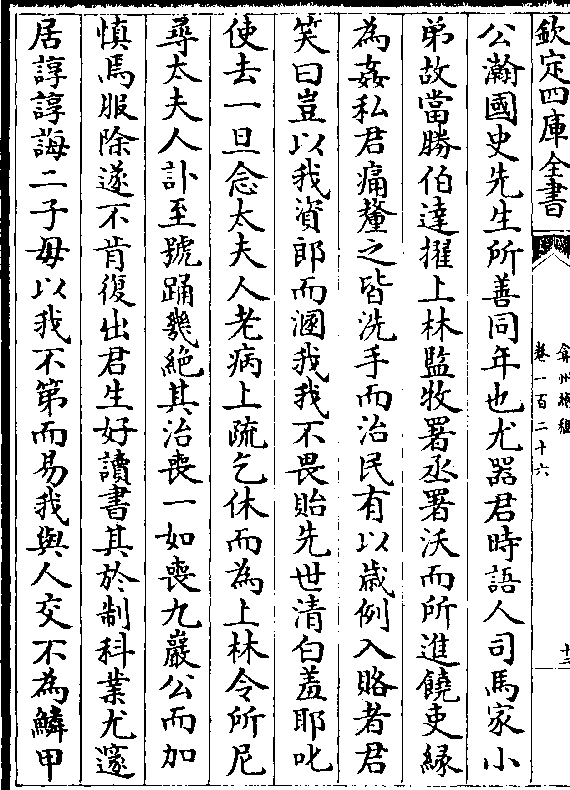 欽定四庫全書
弇州續稿
卷一百二十六
十二
公瀚國史先生所善同年也尤器君時語人司馬家小
弟故當勝伯達擢上林監牧署丞署沃而所進饒吏緣
為姦私君痛釐之皆洗手而治民有以歲例入賂者君
笑曰豈以我資郎而溷我我不畏貽先世清白羞耶叱
使去一旦念太夫人老病上疏乞休而為上林令所尼
尋太夫人訃至號踊幾絕其治喪一如喪九巖公而加
慎焉服除遂不肯復出君生好讀書其於制科業尤邃
居諄諄誨二子毋以我不第而易我與人交不為鱗甲